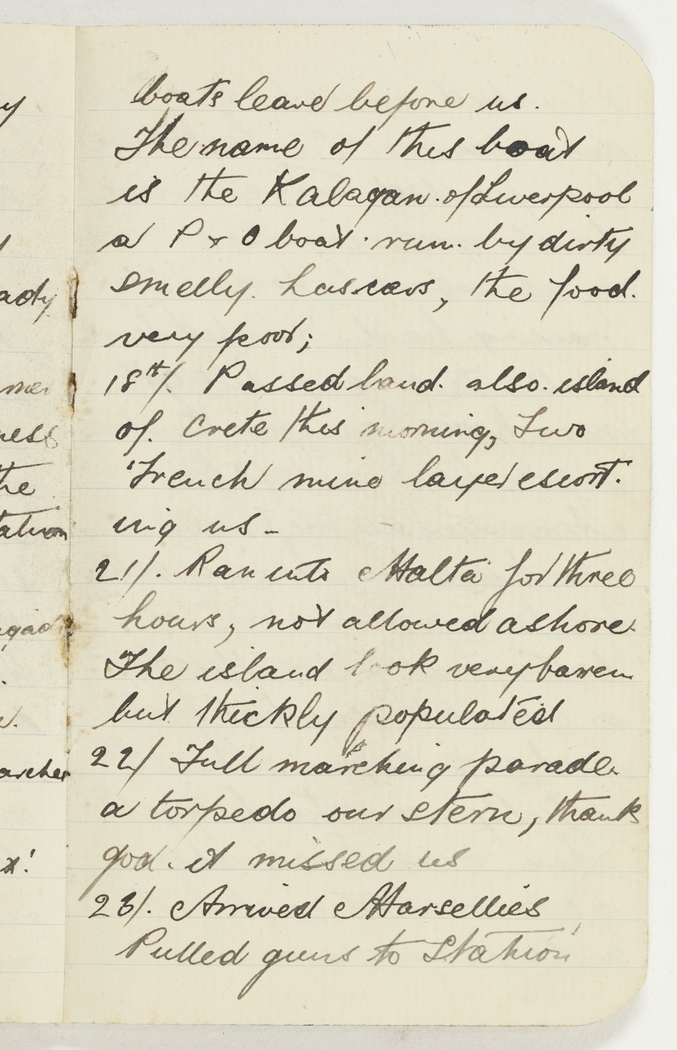 boats leave before us.
The name of this boat
is the Kalagan. of Liverpool
a P & O boat. run. by dirty
smelly. Lascars, the food.
very poor;
18th/. Passed land. also. island
of. Crete this morning, Two
French mine layer escort.
ing us -
21/. Ran into Malta for three
hours, not allowed ashore.
The island look very baren
but thickly populated
22/ Full marching parade.
a torpedo our stern, thank
god. it missed us
23/. Arrived Marsellies
Pulled guns to Station